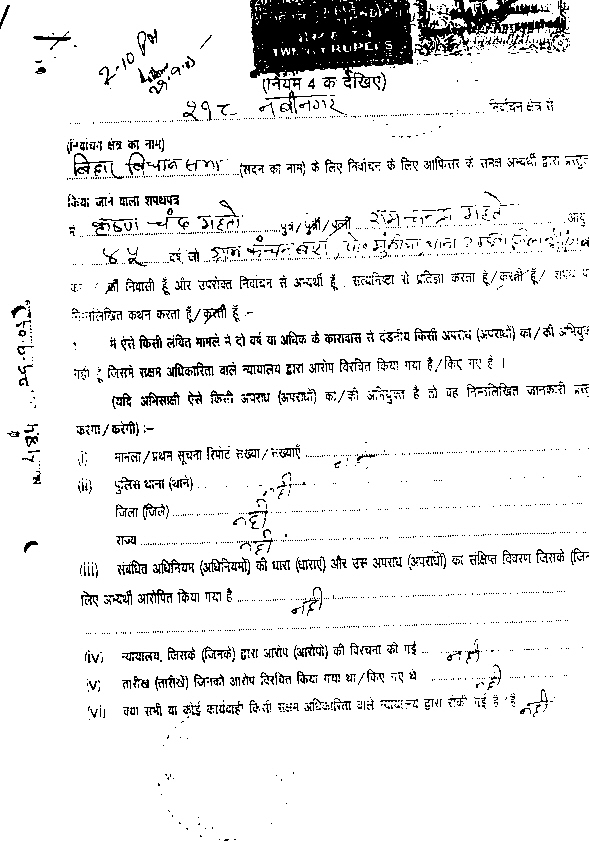 2-10 PM
29.9.05
TWENTY RUPEES
(नियम 4 क देखिए)
२१८ नबीनगर निर्वाचन क्षेत्र से
(निर्वाचन क्षेत्र का नाम)
बिहार विधान सभा (सदन का नाम) के लिए निर्वाचन के लिए आफिसर के समक्ष अभ्यर्थी द्वारा प्रस्तुत
किया जाने वाला शपथपत्र
मैं कृष्ण चंद महतो पुत्र/पुत्री/पत्नी राम चन्द्र महतो आयु
४५ वर्ष जो ग्राम कंचन
का की निवासी हूँ और उपरोक्त निर्वाचन से अभ्यर्थी हूँ सत्यनिष्ठा से प्रतिज्ञा करता हूँ/करती हूँ/ शपथ
निम्नलिखित कथन करता हूँ/करती हूँ :-
मैं ऐसे किसी लंबित मामले में दो वर्ष या अधिक के कारावास से दंडनीय किसी अपराध (अपराधों) का/की अभियुक्त
नहीं हूँ जिसमें सक्षम अधिकारिता वाले न्यायालय द्वारा आरोप विरचित किया गया है/किए गए है ।
(यदि अभिसाक्षी ऐसे किसी अपराध (अपराधों) का/की अभियुक्त है तो वह निम्नलिखित जानकारी प्रस्तुत
करेगा/करेगी) :-
(i) मामला/प्रथम सूचना रिपोर्ट संख्या/संख्याएँ
(ii) पुलिस थाना (थाने) नहीं
जिला (जिले) नहीं
राज्य नहीं
(iii) संबंधित अधिनियम (अधिनियमों) की धारा (धाराएं) और उस अपराध (अपराधों) का संक्षिप्त विवरण जिसके (जिन
लिए अभ्यर्थी आरोपित किया गया है नहीं
(iv) न्यायालय, जिसके (जिनके) द्वारा आरोप (आरोपों) की विरचना की गई नहीं
(v) तारीख (तारीखें) जिनको आरोप विरचित किया गया था/किए गए थे नहीं
(vi) क्या सभी या कोई कार्यवाही किसी सक्षम अधिकारिता वाले न्यायालय द्वारा रोकी गई है/हैं नहीं